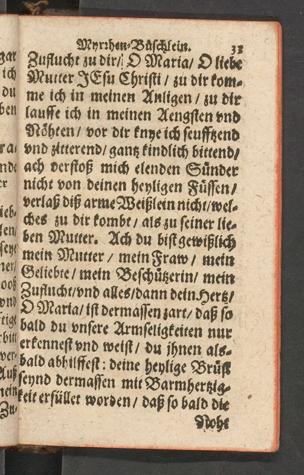 Myrrhen-Büschlein. 31
Zuflucht zu dir/ O Maria/ O liebe
Mutter JEsu Christi / zu dir kom-
me ich in meinen Anligen / zu dir
lauffe ich in meinen Aengsten vnd
Nöhten / vor dir knye ich seufftzend
vnd zitterend/ gantz kindlich bittend/
ach verstoß mich elenden Sünder
nicht von deinen heyligen Füssen/
verlaß diß arme Weißlein nicht/wel-
ches zu dir kombt / als zu seiner lie-
ben Mutter. Ach du bist gewißlich
mein Mutter / mein Fraw / mein
Geliebte / mein Beschützerin / mein
Zuflucht/vnd alles/dann dein Hertz/
O Maria/ ist dermassen zart/ daß so
bald du vnsere Armseligkeiten nur
erkennest vnd weist / du jhnen als-
bald abhilffest: deine heylige Brüst
seynd dermassen mit Barmhertzig-
keit erfüllet worden / daß so bald die
Noht